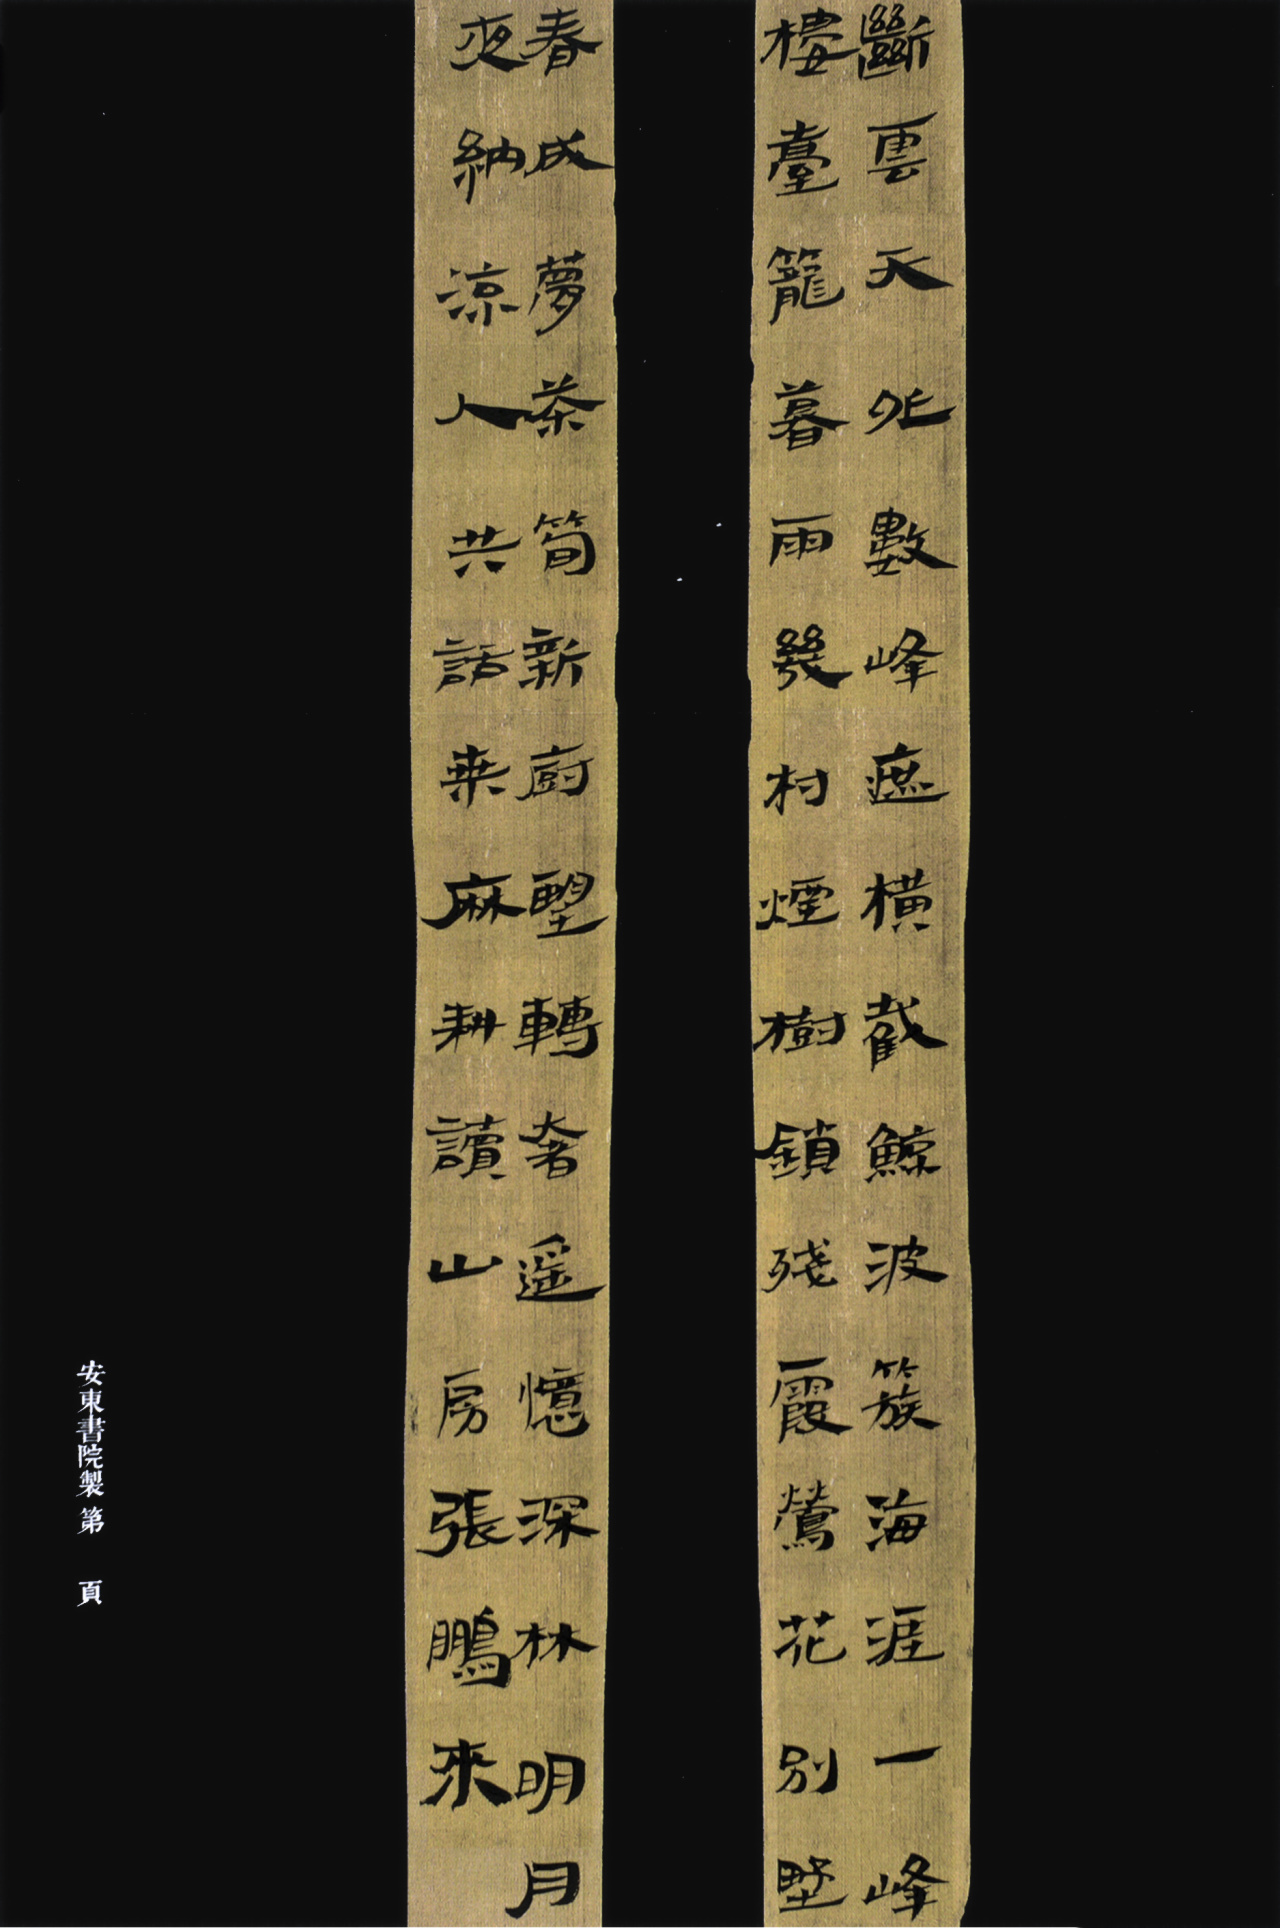 斷雲天外數峰遮橫截鯨波簇海涯一峰
樓臺籠暮雨幾村煙樹鎖殘霞鶯花別墅
春成夢茶筍新廚望轉奢遥憶深林明月
夜納涼人共話桒麻耕讀山房張鵬來
安東書院製 第 頁